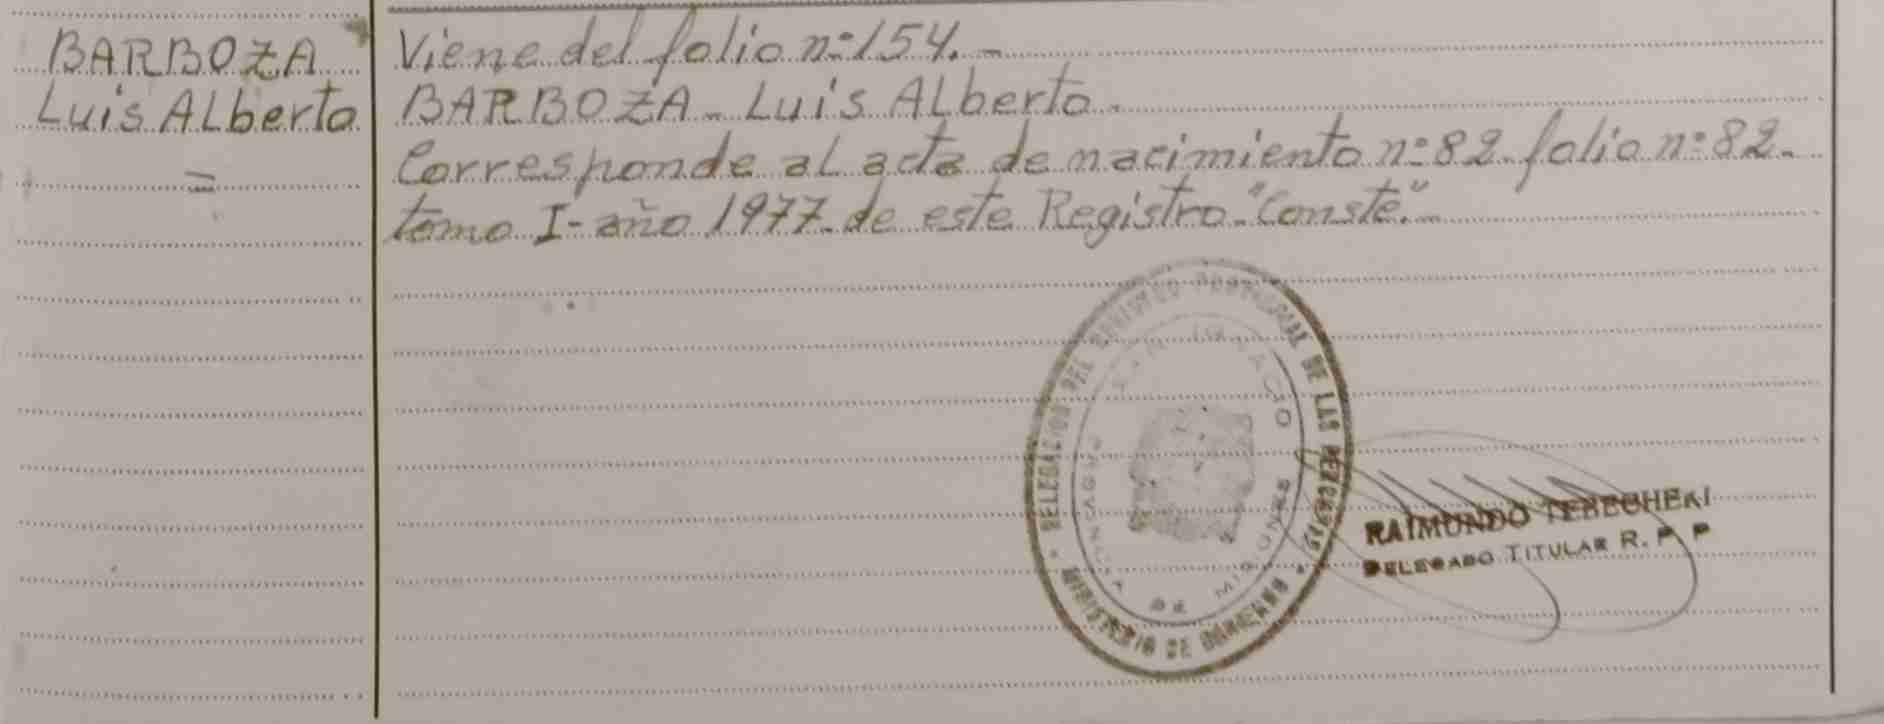 BARBOZA
Luis ALberto
=
Viene del folio nº 154.-
BARBOZA - Luis ALberto.
Corresponde al acta de nacimiento nº 82. folio nº 82.
tomo I- año 1977. de este Registro. "Conste".-
DELEGACION DEL REGISTRO PROVINCIAL DE LAS PERSONAS
* MINISTERIO DE GOBIERNO *
SAN IGNACIO
PROVINCIA DE MISIONES
RAIMUNDO
DELEGADO TITULAR R. P. P